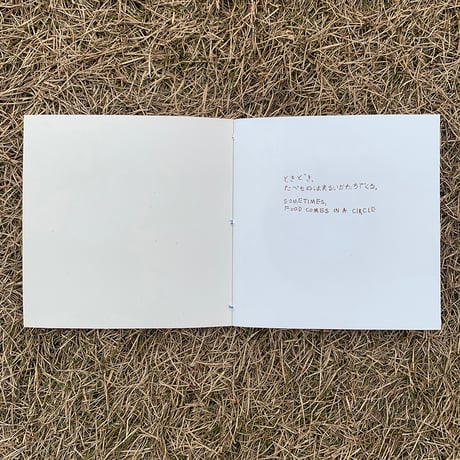 ときどき、
たべものはまるいかたちでくる。
SOMETIMES,
FOOD COMES IN A CIRCLE